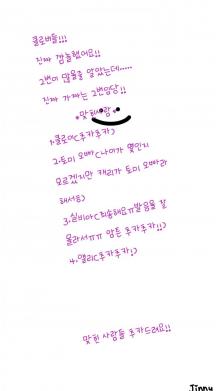 클로버들!!!
진짜 깜놀했어요!!
2번이 많을줄 알았는데.....
진짜 가짜는 2번임당!!
*맞힌사람*
1.클로이(루카루카)
2.토미 오빠(나이가 몇인지
모르겠지만 캐리가 토미 오빠라
해서용)
3.실비아(죄송해요ㅠ발음을 잘
몰라서ㅠㅠ 암튼 루카루카!!)
4.앨리(루카루카!)
맞힌 사람들 루카드려요!!
Jinny